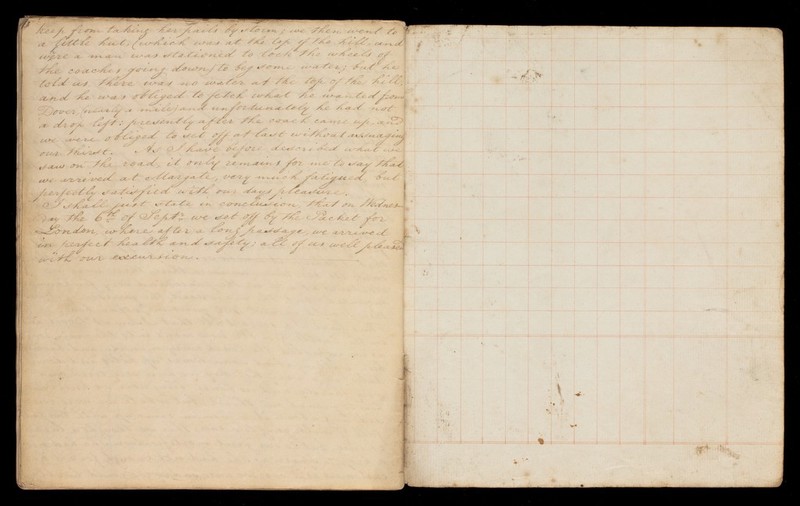 keep from taking her pails by storm; we then went to
a little hut, (which was at the top of the hill, and
were a man was stationed to lock the wheels of
the coaches going down) to beg some water; but he
told us there was no water at the top of the hill,
and he was obliged to fetch what he wanted from
Dover (nearly a mile) and unfortunately he had not
a drop left: presently after the coach came up, and
we were obliged to set off at last without assuaging
our thirst. As I have before described what we
saw on the road, it only remains for me to say that
we arrived at Margate, very much fatigued but
perfectly satisfied with our days pleasure.
I shall just state in conclusion, that on Wednes-
the 6th of Septr we set off by the Packet for
London, where after a long passage, we arrived
in perfect health and safety; all of us well pleased
with our excursion.